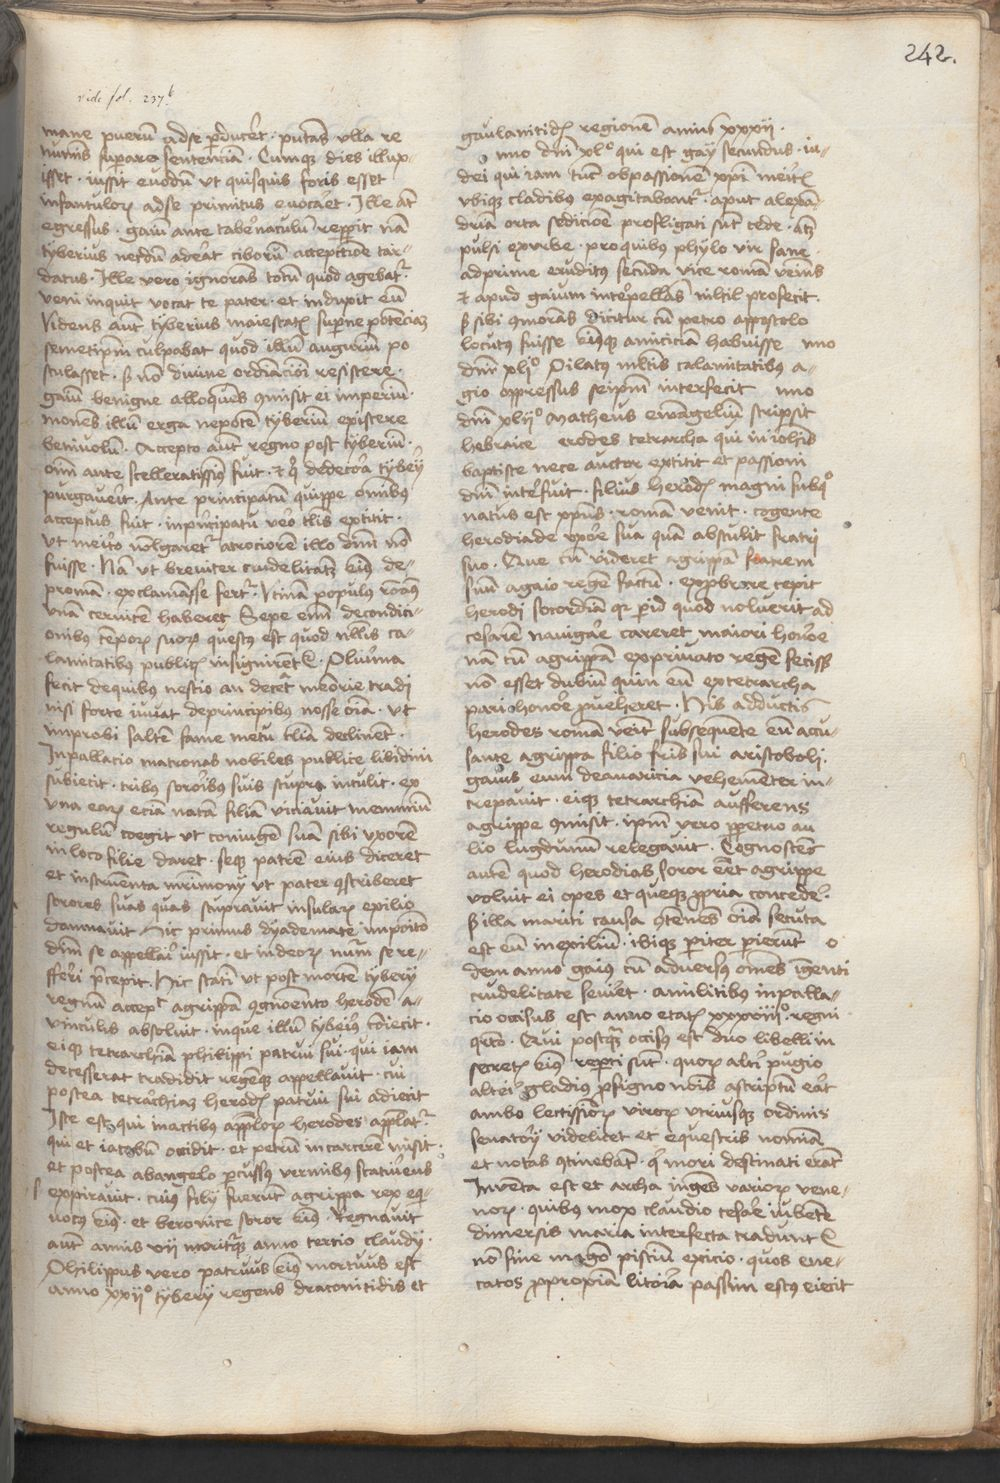 242.
vide fol. 237.b
mane puerū adse ꝑduceret · putās ulla re
numīs supare sentenciā · Cumqꝫ dies illux-
isset · iussit evodū ut quisquis foris esset
infantulorꝫ adse primitus evocaret · Ille at̄
egressus · gaiū ante tabernaculū repperit nā
tyberius necdū aderat ciborū acceptione tar-
datus · Ille vero ignorās totū quod agebat᷑
veni inquit vocat te pater · et induxit eū
Videns aut̄ tyberius maiestatꝫ superne potenciaꝫ
semetipm̄ culpabat quod illū augurm̄ po
stulasset · ꝫ nō divine ordinacioni resistere ·
gaiū benigne alloquēs ꝯmisit ei imperiū
monēs illū erga nepotē tyberiū existere
benivolū · Accepto aut̄ regno post tyberiū ·
oīm ante scelleratissimꝰ fuit · et qͥ dedecora tyberij
purgaverit · Ante principatū quippe omībus
acceptus fuit · inprīcipatu v̄o tlis extitit ·
ut merito vulgaret᷑ atrociorē illo dn̄m nō
fuisse · Nā ut breviter crudelitatꝫ eiꝰ de-
promā · exclamasse fert᷑ · Utinā populus romāꝰ
unā cervicē haberet Sepe enī decondici-
onibus temporꝫ suorꝫ questus est quod nullis ca-
lamitatibus publicꝫ insignirent᷑ · Plurima
fecit dequibus nescio an decet memorie tradi
nisi forte iuvat deprincipibus nosse oīa · ut
improbi saltē fame metu tlia declinēt ·
Inpallacio matronas nobiles publice libidini
subiecit · tribus sororibus suis stupra intulit · ex
una earꝫ eciā natā filiā viciavit memmiū
regulū coegit ut coniugē suā sibi uxorē
in loco filie daret · seqꝫ patrē eius diceret
et instrumenta matrimonij ut pater ꝯscriberet
sorores suas quas stupravit insularꝫ exilio
damnavit Hic primus dyademate imposito
dn̄m se appellari iussit · et indeorꝫ numerū se re-
fferri p̄cepit · Hic statī ut post mortē tyberij
regnū accepit agrippā ꝯgnoento herodē · a-
vinculis absoluit · inque illū tyberiꝰ cōiecit ·
eiqꝫ tetrarchiā philippi patrui sui · qui iam
decesserat tradidit regēqꝫ appellavit · cui
postea tetrarchiaꝫ herodꝫ patrui sui adiecit
Iste est qui inactibus apl̄orꝫ herodes appellat᷑
qui et iacobū occidit · et petrū incarcerē misit ·
et postea abangelo percussꝰ vermibus scaturens
expiravit · cuiꝰ filij fuerunt agrippa rex eq̄-
vocꝰ eiꝰ · et beronice soror eiꝰ · Regnavit
aut̄ annis vij moriturqꝫ anno tercio claudij ·
Philippus vero patruus eiꝰ mortuus est
anno xxijº tyberij regens draconitidis et
gaulanitidꝫ regionē annis xxxij ·
nno dn̄i xlº qui est gaij secundus · iu-
dei qui iam tūc obpassionē xp̄i meritꝫ
ubiqꝫ cladibus exagitabant᷑ · aput alexā-
driā orta sedicione profligati sūt cede · atqꝫ
pulsi exurbe · proquibus phylo vir sane
adprime eruditꝰ secunda vice romā veniēs
et apud gaium interpellās nihil profecit ·
ꝫ sibi ꝯmorās dicitur cū petro appostolo
locutꝰ fuisse eiꝰqꝫ amiciciā habuisse nno
dn̄i xljº Pilatus multis calamitatibus a-
gio oppressus seipm̄ interfecit nno
dn̄i xlijº Matheus ewāngeliū scripsit
hebraice erodes tetrarcha qui in ioh̄is
baptiste nece auctor extitit et passioni
dn̄i interfuit · filius herodꝫ magni subqͦ
natus est xp̄us · romā venit · cogente
herodiade uxore sua quā abstulit fratri
suo · Que cū videret agrippā fratrem
suū agaio regē factū · exprobrare cepit
herodi socordiā qꝛ perid quod noluerit ad
cesarē navigare careret maiori honore
nā cū agrippā exprivato regē fecisset
nō esset dubiū quin eū extetrarcha
pari honore proveheret · His adductꝰ
herodes romā venit subsequente eū accu-
sante agrippa filio frīs sui aristoboli ·
gaius eum deavaricia vehementer in-
crepavit · eiqꝫ tetrarchiā aufferens
agrippe ꝯmisit · ipm̄ vero perpetuo au
lio lugdunū relegavit · Cognoscēs
autē quod herodias soror esset agrippe
voluit ei opes et queqꝫ propria concedere ·
ꝫ illa mariti causa ꝯtēnēs oīa secuta
est eū inexiliū · ibiqꝫ pariter perierūt o
dem anno gaius cū adversus omnes ingenti
crudelitate seviret · amilitibus inpalla-
cio occisus est anno etatꝫ xxxviiijº · regni
qrto · Qui postqꝫ occisus est duo libelli in
secretꝫ eiꝰ reperti sūt · quorꝫ alteri pugio
alteri gladius prosigno nominis ascriptū erat
ambo lectissimorꝫ virorꝫ utriusqꝫ ordinis
senatorij videlicet et equestris nomina
et notas ꝯtinebant · qͥ mori destinati erāt
Inventa est et archa ingens variorꝫ vene-
norꝫ · quibus mox claudio cesare iubente
dimersis maria interfecta tradunt᷑
nō sine magno pisciū exicio · quos ene-
catos ꝓpropria litora passim estus eiecit